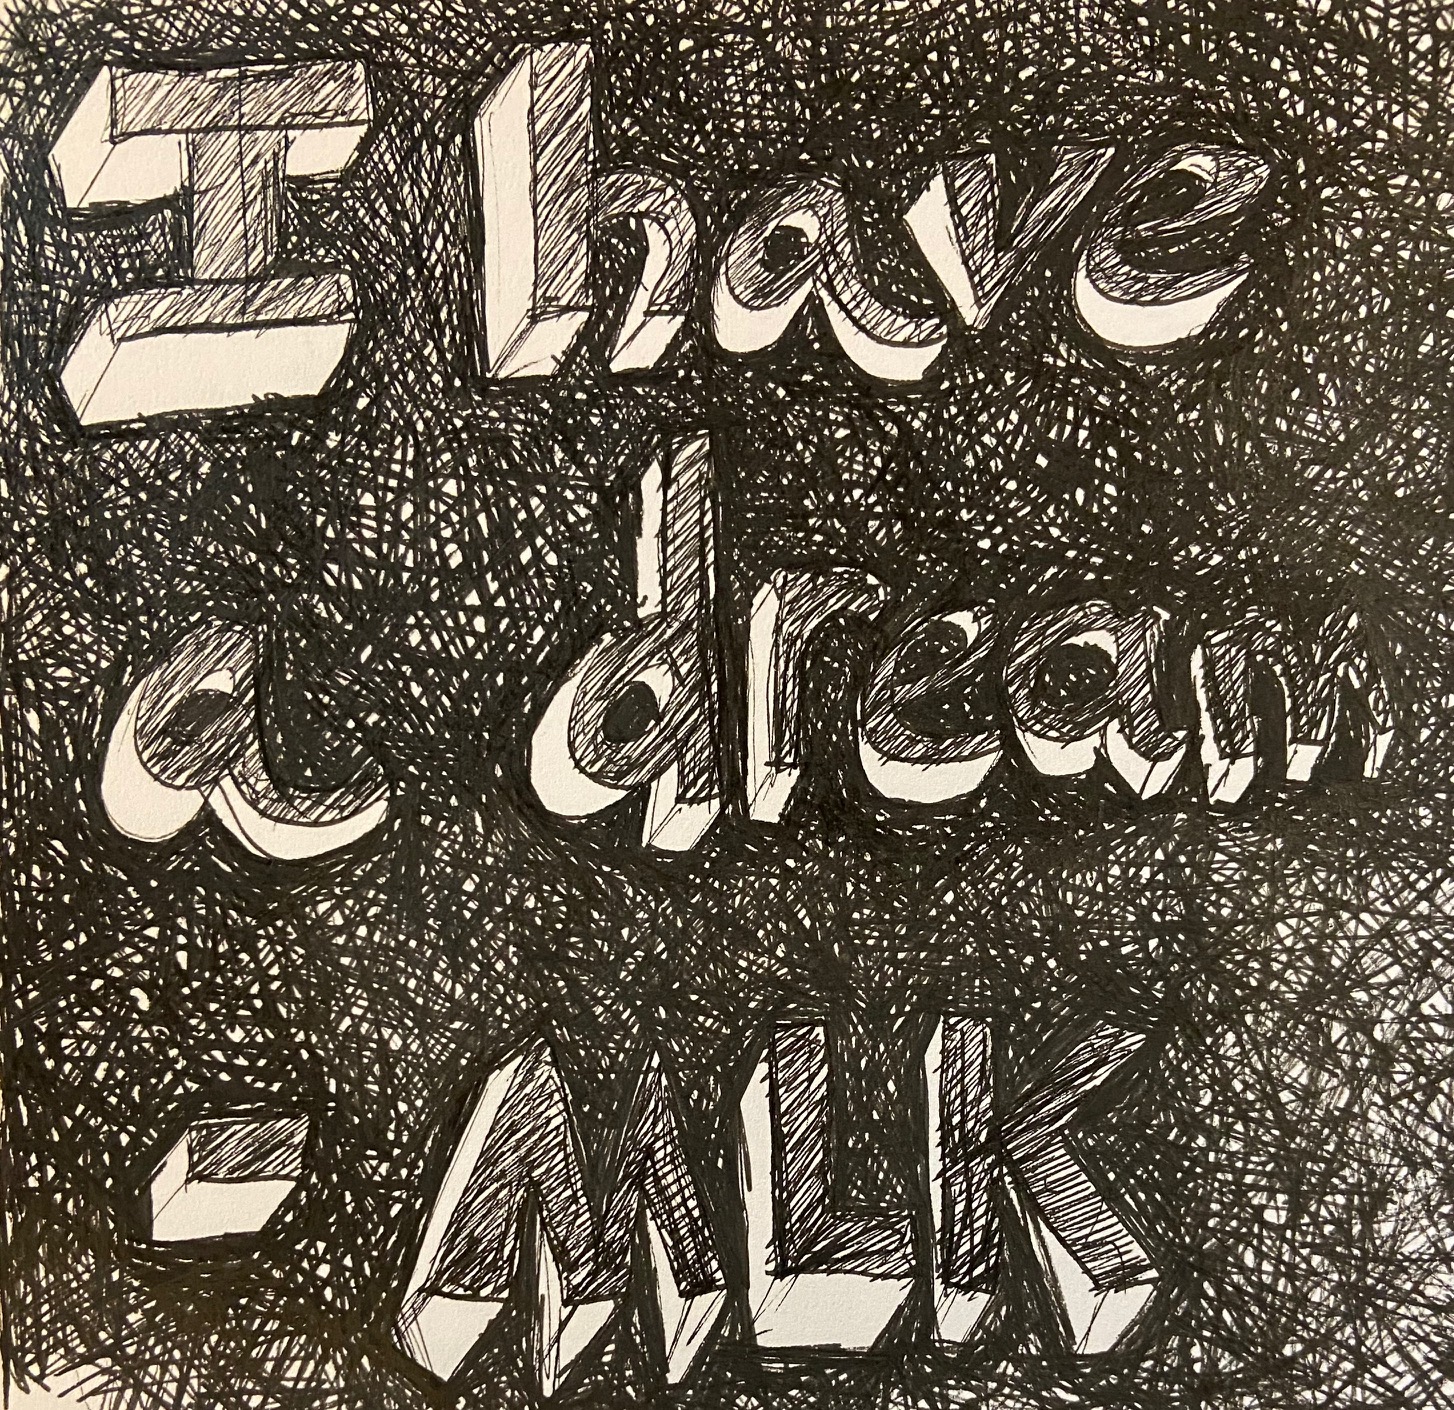 I have
a dream
- MLK